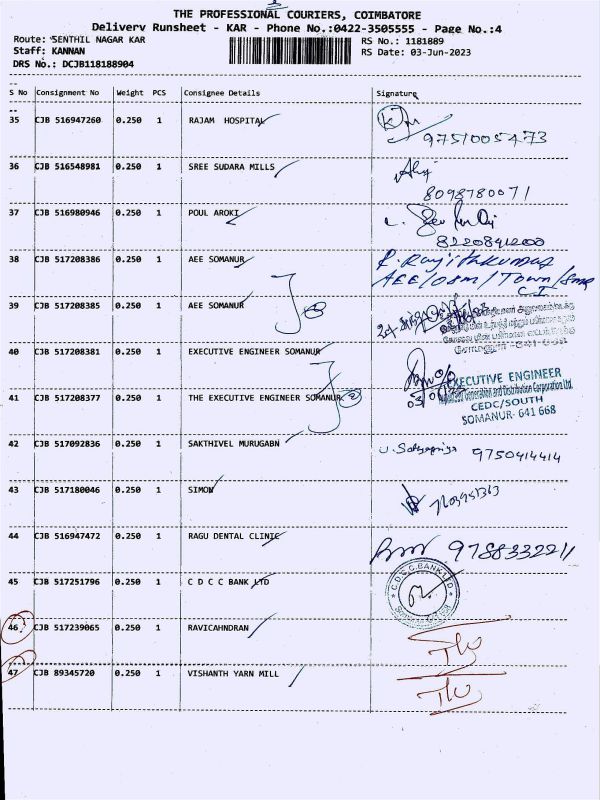 THE PROFESSIONAL COURIERS, COIMBATORE
Delivery Runsheet - KAR - Phone No.:0422-3505555 - Page No.:4
Route: SENTHIL NAGAR KAR RS No.: 1181889
Staff: KANNAN RS Date: 03-Jun-2023
DRS No.: DCJB118188904
S No Consignment No Weight PCS Consignee Details Signature
35 CJB 516947260 0.250 1 RAJAM HOSPITAL
9751005473
36 CJB 516548981 0.250 1 SREE SUDARA MILLS
8098780071
37 CJB 516980946 0.250 1 POUL AROKI
8220841200
38 CJB 517208386 0.250 1 AEE SOMANUR
AEE/O&M/Town/Smr
39 CJB 517208385 0.250 1 AEE SOMANUR
40 CJB 517208381 0.250 1 EXECUTIVE ENGINEER SOMANUR
EXECUTIVE ENGINEER
Generation and Distribution Corporation Ltd.
41 CJB 517208377 0.250 1 THE EXECUTIVE ENGINEER SOMANUR
CEDC/SOUTH
SOMANUR- 641 668
42 CJB 517092836 0.250 1 SAKTHIVEL MURUGABN
9750414414
43 CJB 517180046 0.250 1 SIMON
44 CJB 516947472 0.250 1 RAGU DENTAL CLINIC
9788332211
45 CJB 517251796 0.250 1 C D C C BANK LTD
C.D.C.C.BANK LTD
46 CJB 517239065 0.250 1 RAVICAHNDRAN
47 CJB 89345720 0.250 1 VISHANTH YARN MILL